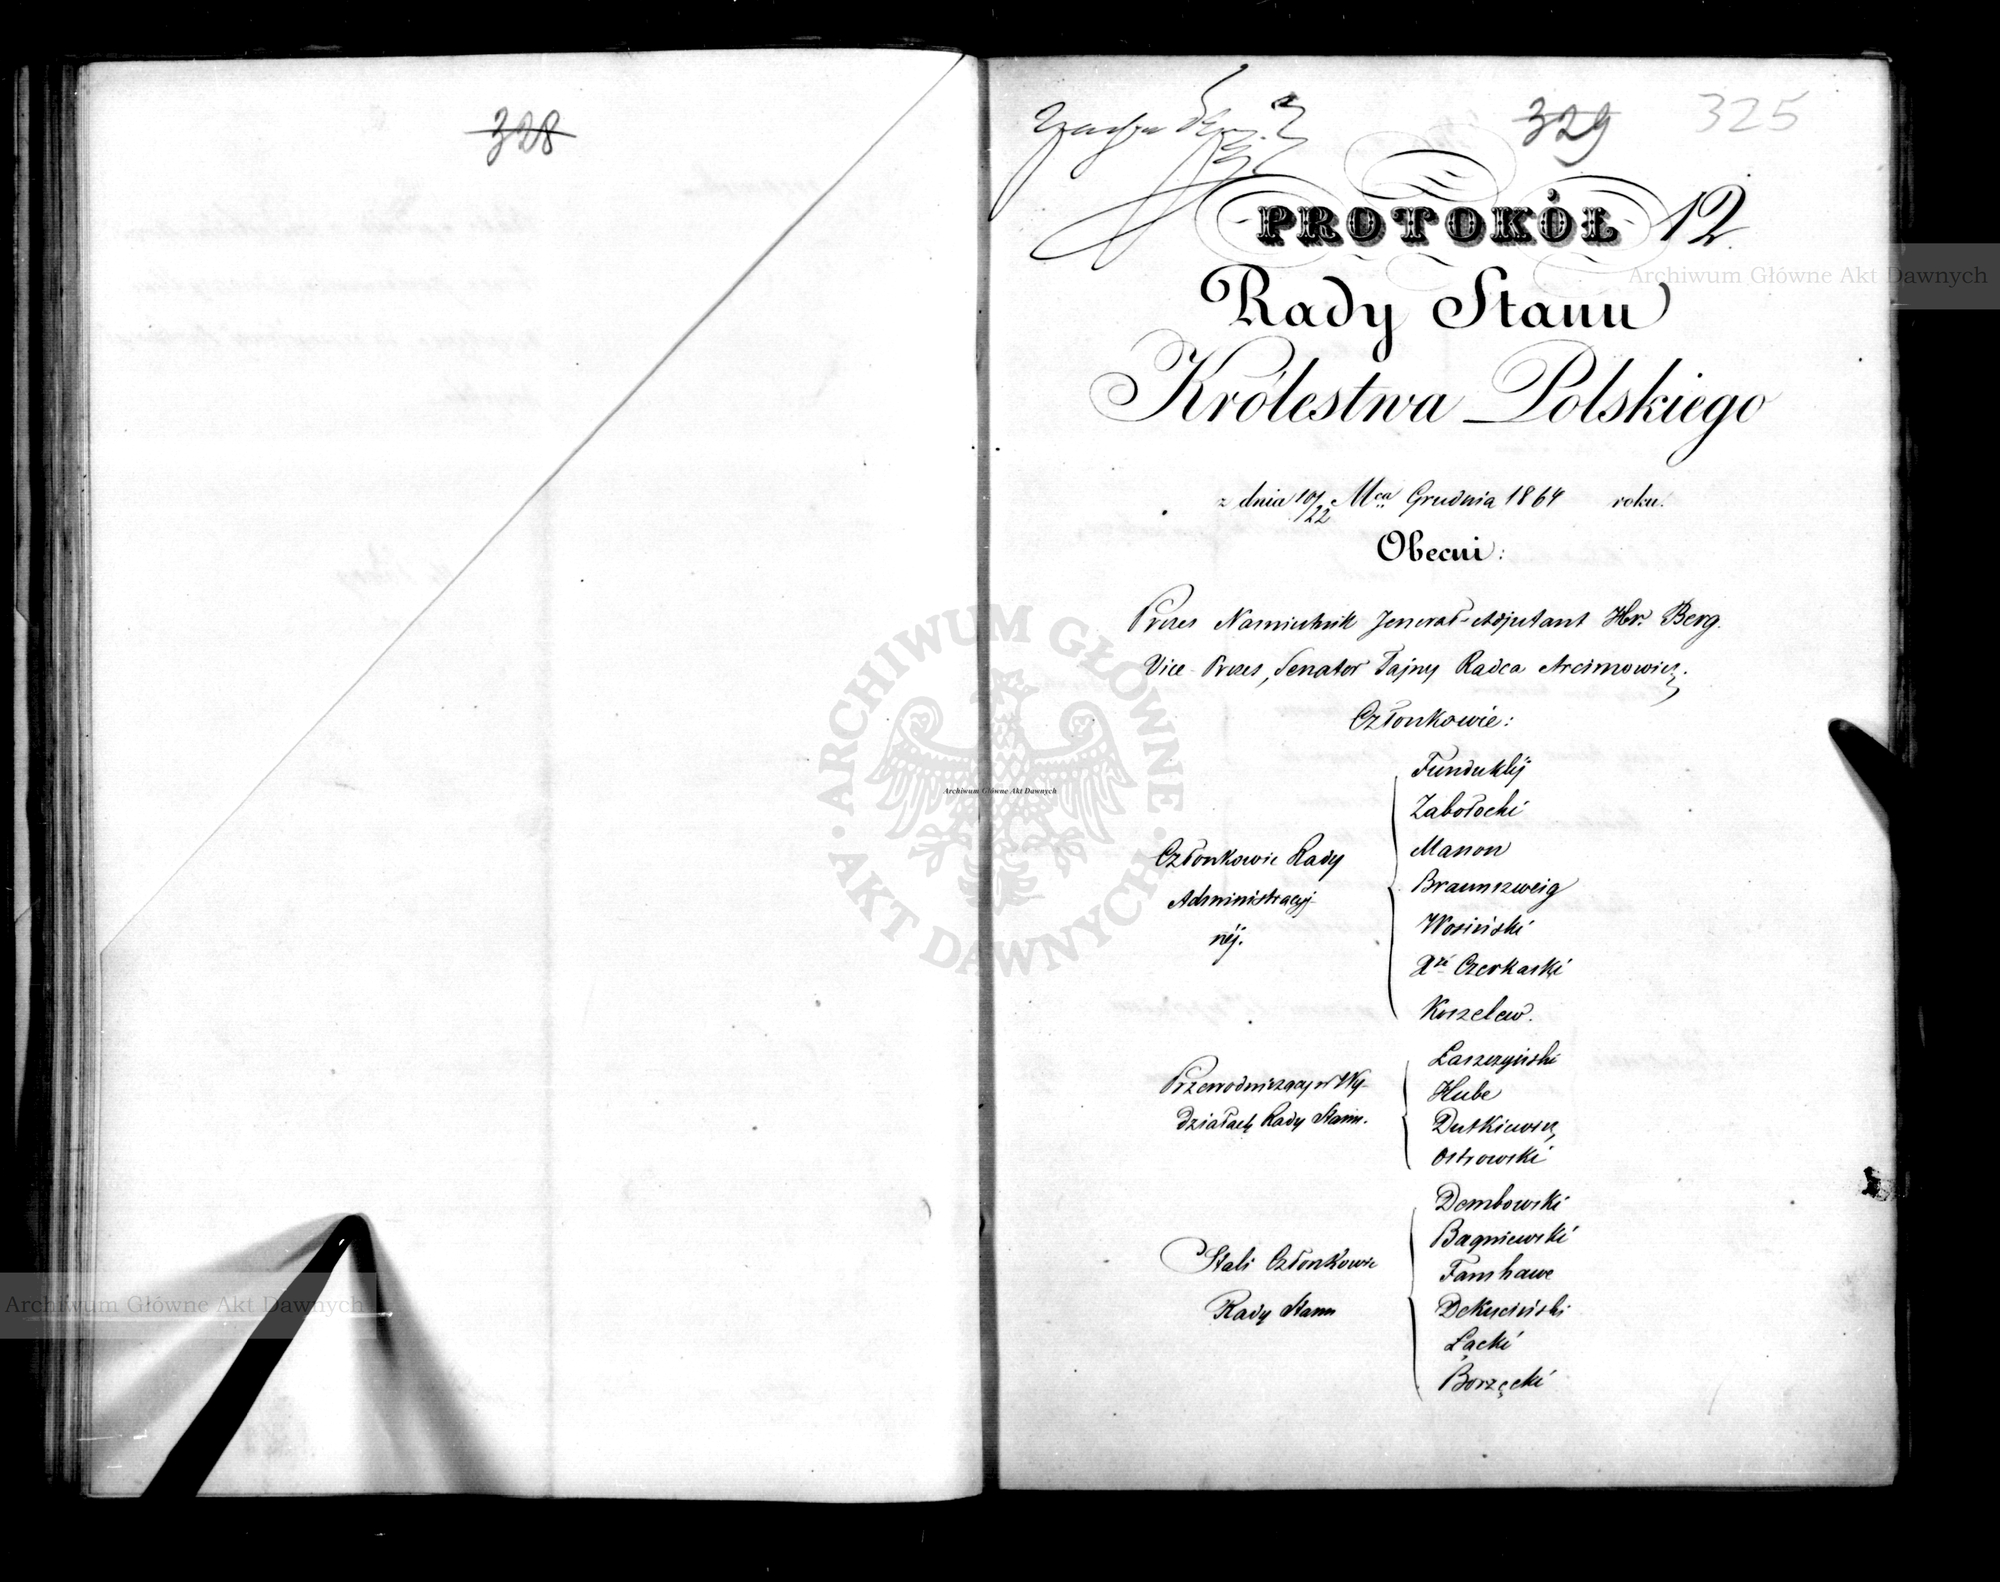 328
329
325
PROTOKÓŁ 12.
Rady Stanu
Królestwa Polskiego
z dnia 10/22 Mca Grudnia 1864 roku.
Obecni:
Prezes Namiestnik Jenerał-Adjutant Hr. Berg.
Vice-Prezes, Senator Tajny Radca Arcimowicz.
Członkowie:
Członkowie Rady
Administracyj-
néj.
Fundukléj
Zabołocki
Manon
Braunszweig
Wosiński
Xżé Czerkaski
Koszelew.
Przewodniczący w Wy-
działach Rady Stanu.
Łaszczyński
Hube
Dutkiewicz
Ostrowski
Stali Członkowie
Rady Stanu
Dembowski
Bagniewski
Fanshawe
Dekuciński
Łącki
Borzęcki
Archiwum Główne Akt Dawnych
Archiwum Główne Akt Dawnych
Archiwum Główne Akt Dawnych
ARCHIWUM GŁÓWNE AKT DAWNYCH